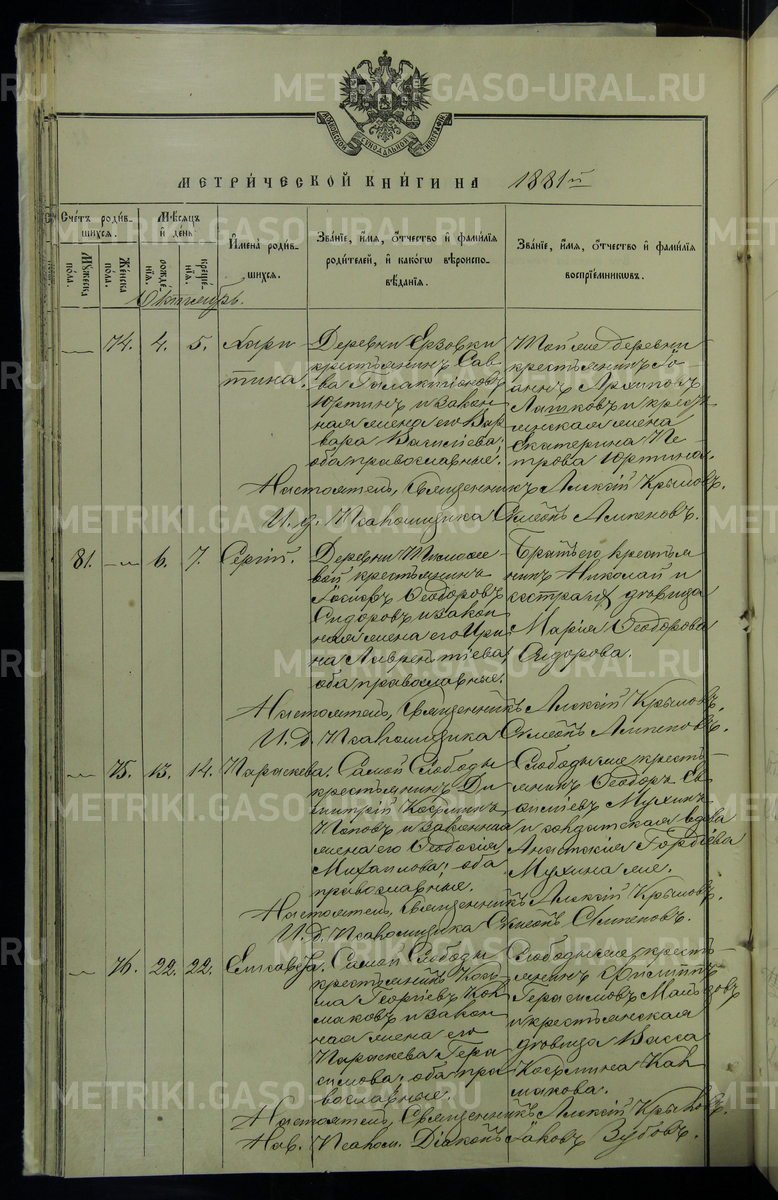 МОСКОВСКОЙ СѴНОДАЛЬНОЙ ТИПОГРАФІИ
МЕТРИ́ЧЕСКОЙ КНИ́ГИ НА 1881й
Сче́тъ роди́вшихся.
Мѣ́сяцъ и҆ де́нь
И҆мена̀ роди́вшихся.
Зва́нїе, и҆́мя, ѻ҆́тчество и҆ фами́лїя роди́телей, и҆ како́гѡ вѣроисповѣ́данїя.
Зва́нїе, и҆́мя, ѻ҆́тчество и҆ фами́лїя воспрїе́мникѡвъ.
Му́жеска по́ла.
Же́нска по́ла.
рожде́нїя.
креще́нїя.
Октябрь.
— 74. 4. 5. Харитина.
Деревни Ерзовки
крестьянинъ Савва Галактіоновъ
Юртинъ и законная жена его Варвара Васильева;
оба православные.
Той же деревни
крестьянинъ Іоаннъ Архиповъ
и крестьянская жена
Екатерина Петрова Юртина.
Настоятель, Священникъ Алексій Крыловъ.
И. д. Псаломщика Симеонъ
81. — 6. 7. Сергій.
Деревни Тимофеевой крестьянинъ
Іосифъ Ѳеодоровъ
Сидоровъ и законная жена его Ирина Лаврентіева
оба православные.
Братъ его крестьянинъ Николай и
сестра ихъ дѣвица
Марія Ѳеодорова
Сидорова.
Настоятель, Священникъ Алексій Крыловъ.
И. д. Псаломщика Симеонъ
— 75. 13. 14. Параскева.
Самой Слободы
крестьянинъ Димитрій Косминъ
Поповъ и законная
жена его Ѳеодосія
Михайлова; оба
православные.
Слободы же крестьянинъ Ѳеодоръ Евѳиміевъ Мухинъ
и солдатская вдова
Анастасія Гордіева
Мухина же.
Настоятель, Священникъ Алексій Крыловъ.
И. д. Псаломщика Симеонъ
— 76. 22. 22. Елисавета.
Самой Слободы
крестьянинъ Косма Георгіевъ Колмаковъ и законная жена его
Параскева Герасимова; оба православные.
Слободы же крестьянинъ Филиппъ
Герасимовъ
и крестьянская
дѣвица Васса
Космина Колмакова.
Настоятель, Священникъ Алексій Крыловъ.
Псалом. Діаконъ Іаковъ Зубовъ.
METRIKI.GASO-URAL.RU